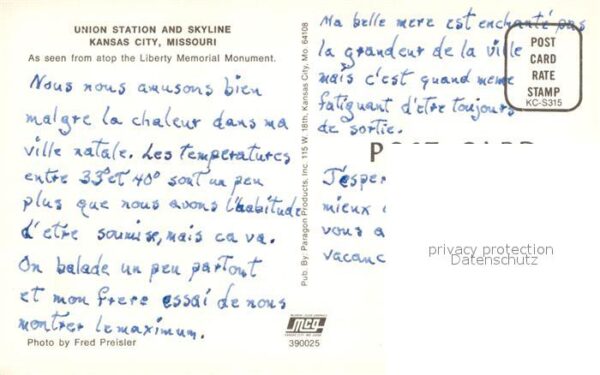 UNION STATION AND SKYLINE
KANSAS CITY, MISSOURI
As seen from atop the Liberty Memorial Monument.
Nous nous amusons bien
malgre la chaleur dans ma
ville natale. Les temperatures
entre 33° et 40° sont un peu
plus que nous avons l'habitude
d'etre soumise, mais ca va.
On balade un peu partout
et mon frere essai de nous
montrer le maximum.
Photo by Fred Preisler
Pub. By: Paragon Products, Inc. 115 W. 18th, Kansas City, Mo. 64108
mcg
390025
Ma belle mere est enchanté pas
la grandeur de la ville
mais c'est quand meme
fatiguant d'etre toujours
de sortie.
POST
CARD
RATE
STAMP
KC-S315
POST CARD
J'esper
mieux
vous a
vacanc
privacy protection
Datenschutz